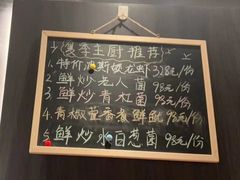 夏季主厨推荐
1.特价波斯顿龙虾328元/份
2.鲜炒老人菌98元/份
3.鲜炒青杠菌98元/份
4.青椒藿香煮鲜鱿98元/份
5.鲜炒水白葱菌98元/份